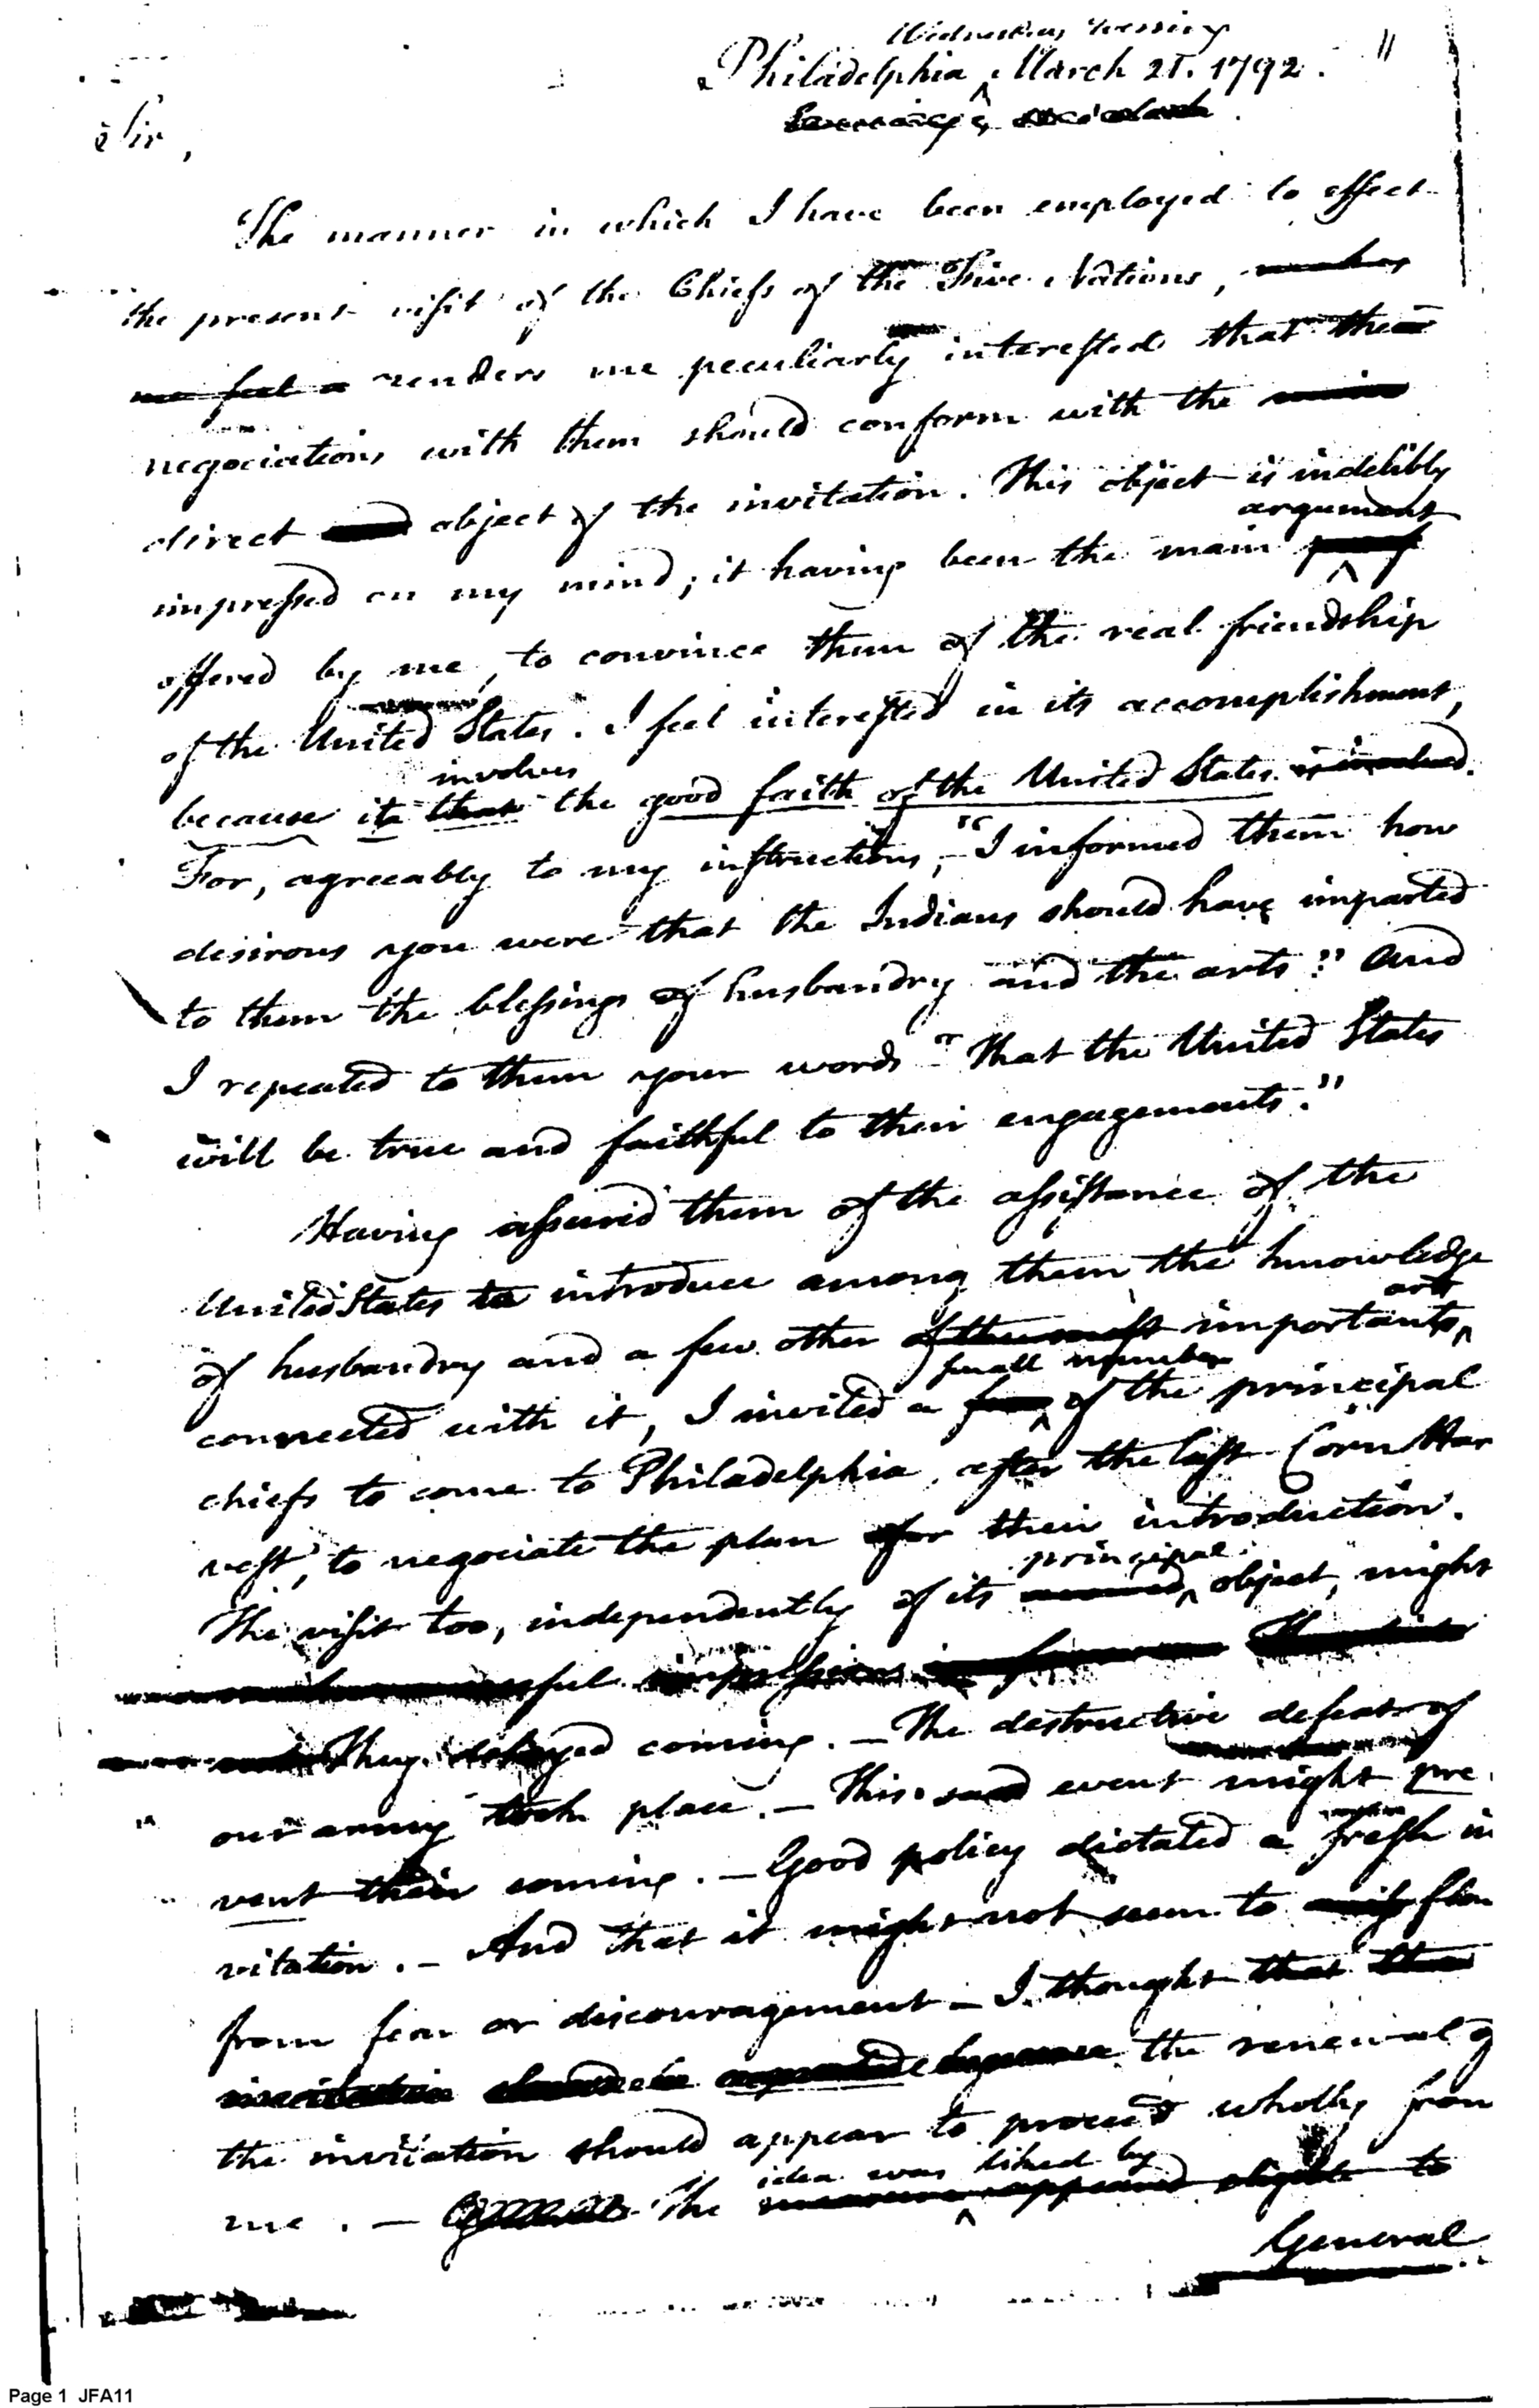 Wednesday Evening
Philadelphia March 21. 1792.
Sir,
The manner in which I have been employed to effect
the present visit of the Chiefs of the Five Nations,
me feel a renders me peculiarly interested that the
negociations with them should conform with the
direct object of the invitation. This object is indelibly
argument
impressed on my mind; it having been the main
offered by me, to convince them of the real friendship
of the United States. I feel interested in its accomplishment,
involves
because it that the good faith of the United States is involved.
For, agreeably to my instructions, "I informed them how
desirous you were that the Indians should have imparted
to them the blessings of husbandry and the arts:" and
I repeated to them your words "That the United States
will be true and faithful to their engagements."
Having assured them of the assistance of the
United States to introduce among them the knowledge
arts
of husbandry and a few other of the most important
small number
connected with it, I invited a few of the principal
chiefs to come to Philadelphia, after the last Corn Har
vest, to negociate the plan for their introduction.
principal
The visit too, independently of its object, might
useful impressions
They delayed coming. — The destructive defeat of
our army took place. — This sad event might pre
vent their coming. — Good policy dictated a fresh in
vitation. — And that it might not seem to flow
from fear or discouragement — I thought that the
invitation should be the renewal of
the invitation should appear to proceed wholly from
idea was liked by
me. — The measure appeared eligible to
General
Page 1 JFA11